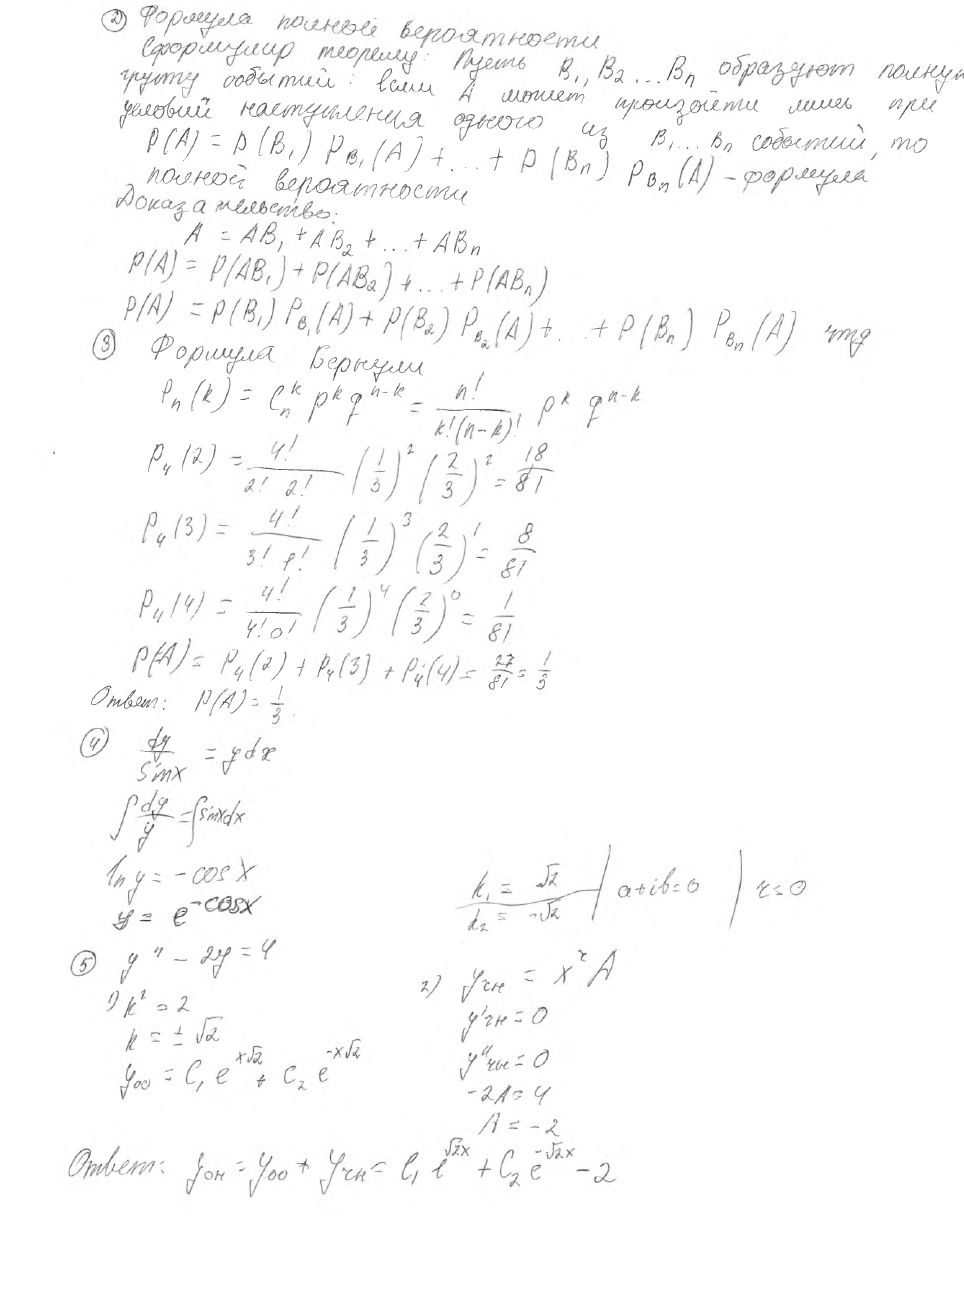 ② Формула полной вероятности
Сформулир теорему: Пусть B₁, B₂ ... Bₙ образуют полную
группу событий: если A может произойти лишь при
условий наступления одного из B₁ ... Bₙ событий, то
P(A) = P(B₁) P_B₁(A) + ... + P(Bₙ) P_Bₙ(A) – формула
полной вероятности
Доказательство:
A = AB₁ + AB₂ + ... + ABₙ
P(A) = P(AB₁) + P(AB₂) + ... + P(ABₙ)
P(A) = P(B₁) P_B₁(A) + P(B₂) P_B₂(A) + ... + P(Bₙ) P_Bₙ(A) чтд
③ Формула Бернули
Pₙ(k) = Cₙᵏ pᵏ qⁿ⁻ᵏ = n!/(k!(n-k)!) pᵏ qⁿ⁻ᵏ
P₄(2) = 4!/(2! 2!) (1/3)² (2/3)² = 18/81
P₄(3) = 4!/(3! 1!) (1/3)³ (2/3)¹ = 8/81
P₄(4) = 4!/(4! 0!) (1/3)⁴ (2/3)⁰ = 1/81
P(A) = P₄(2) + P₄(3) + P₄(4) = 27/81 = 1/3
Ответ: P(A) = 1/3.
④ dy/sinx = y dx
∫ dy/y = ∫ sinx dx
ln y = -cos x
y = e^(-cosx)
⑤ y'' - 2y = 4
1) k² = 2
k = ± √2
y₀₀ = C₁ e^(x√2) + C₂ e^(-x√2)
k₁ = √2 | a+ib=0 | r=0
k₂ = -√2
2) yчн = xʳ A
y'чн = 0
y''чн = 0
-2A = 4
A = -2
Ответ: yон = y₀₀ + yчн = C₁ e^(√2x) + C₂ e^(-√2x) - 2